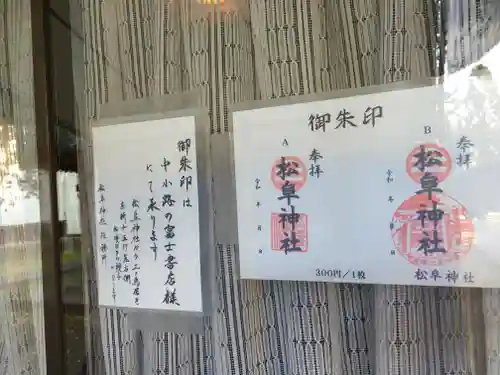 御朱印は
中小路の富士書店様
にて承ります
松阜神社から二ノ鳥居を
松阜神社 社務所
御朱印
A
奉拝
松阜神社
令和 年 月 日
B
奉拝
松阜神社
令和 年 月 日
松阜神社
300円/1枚